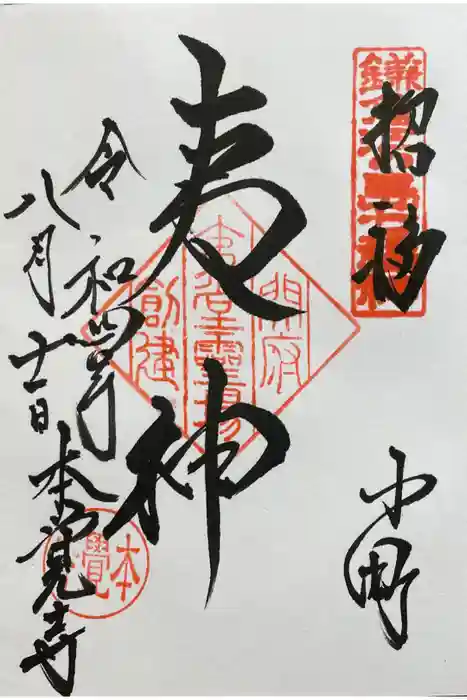 招福
小町
夷神
令和四年
八月十一日
本覚寺
夷堂霊場
開府
創建
本覺